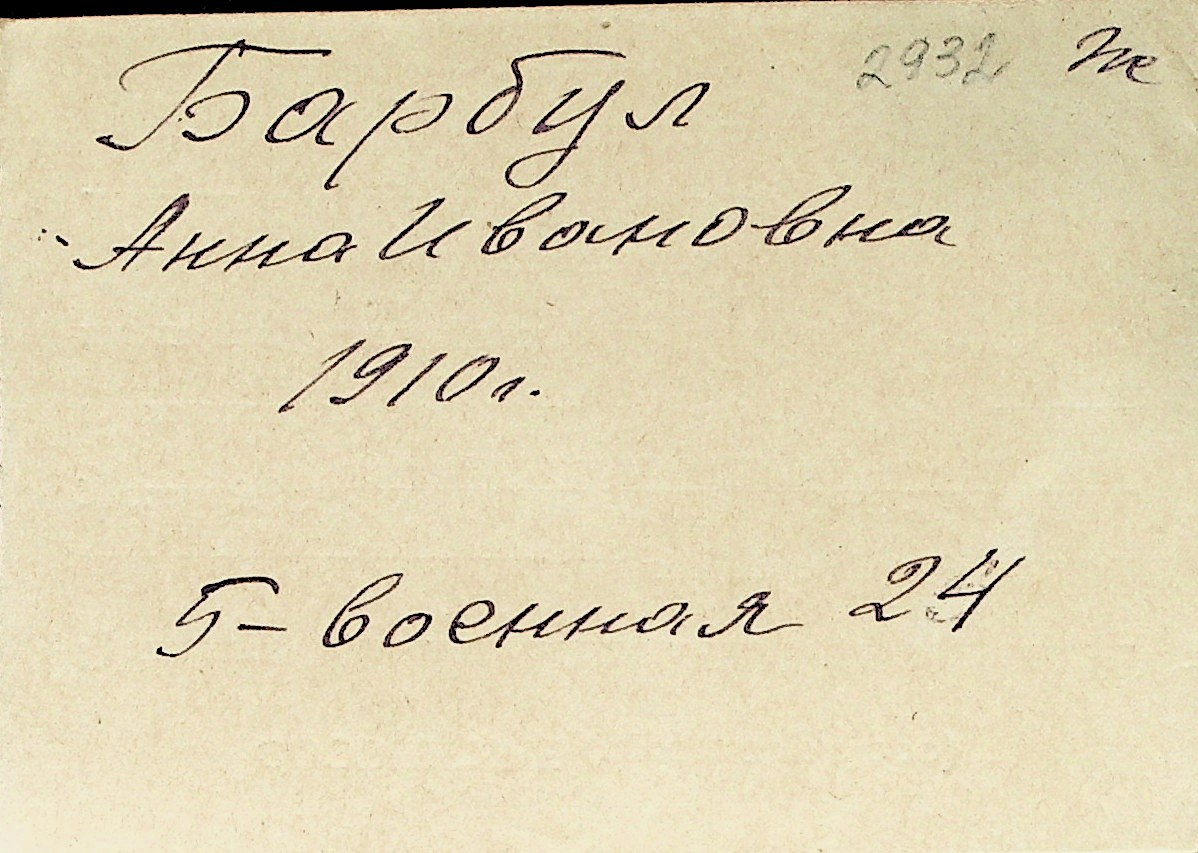 Барбул 2932 ж
Анна Ивановна
1910г.
5-военная 24